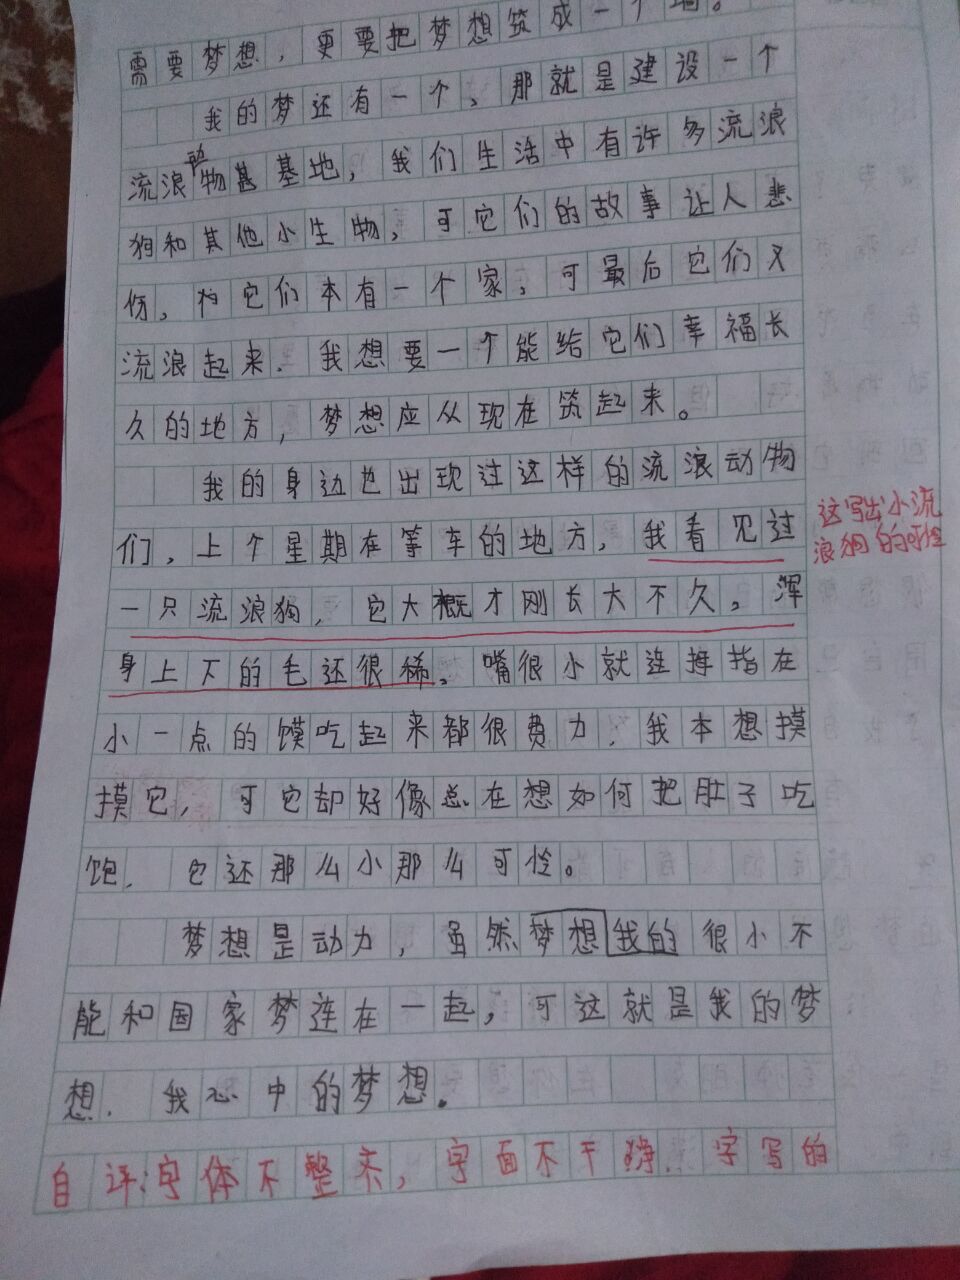 需要梦想，更要把梦想筑成一个墙。
我的梦还有一个，那就是建设一个
流浪动物基地，我们生活中有许多流浪
狗和其他小生物，可它们的故事让人悲
伤，它们本有一个家，可最后它们又
流浪起来.我想要一个能给它们幸福长
久的地方，梦想应从现在筑起来。
我的身边也出现过这样的流浪动物
们，上个星期在等车的地方，我看见过
一只流浪狗，它大概才刚长大不久。浑
身上下的毛还很稀，嘴很小就连拇指在
小一点的馍吃起来都很费力，我本想摸
摸它，可它却好像总在想如何把肚子吃
饱，它还那么小那么可怜。
梦想是动力，虽然梦想我的很小不
能和国家梦连在一起，可这就是我的梦
想.我心中的梦想.
自评:字体不整齐，字面不干净.字写的
这写出小流
浪狗的可怜